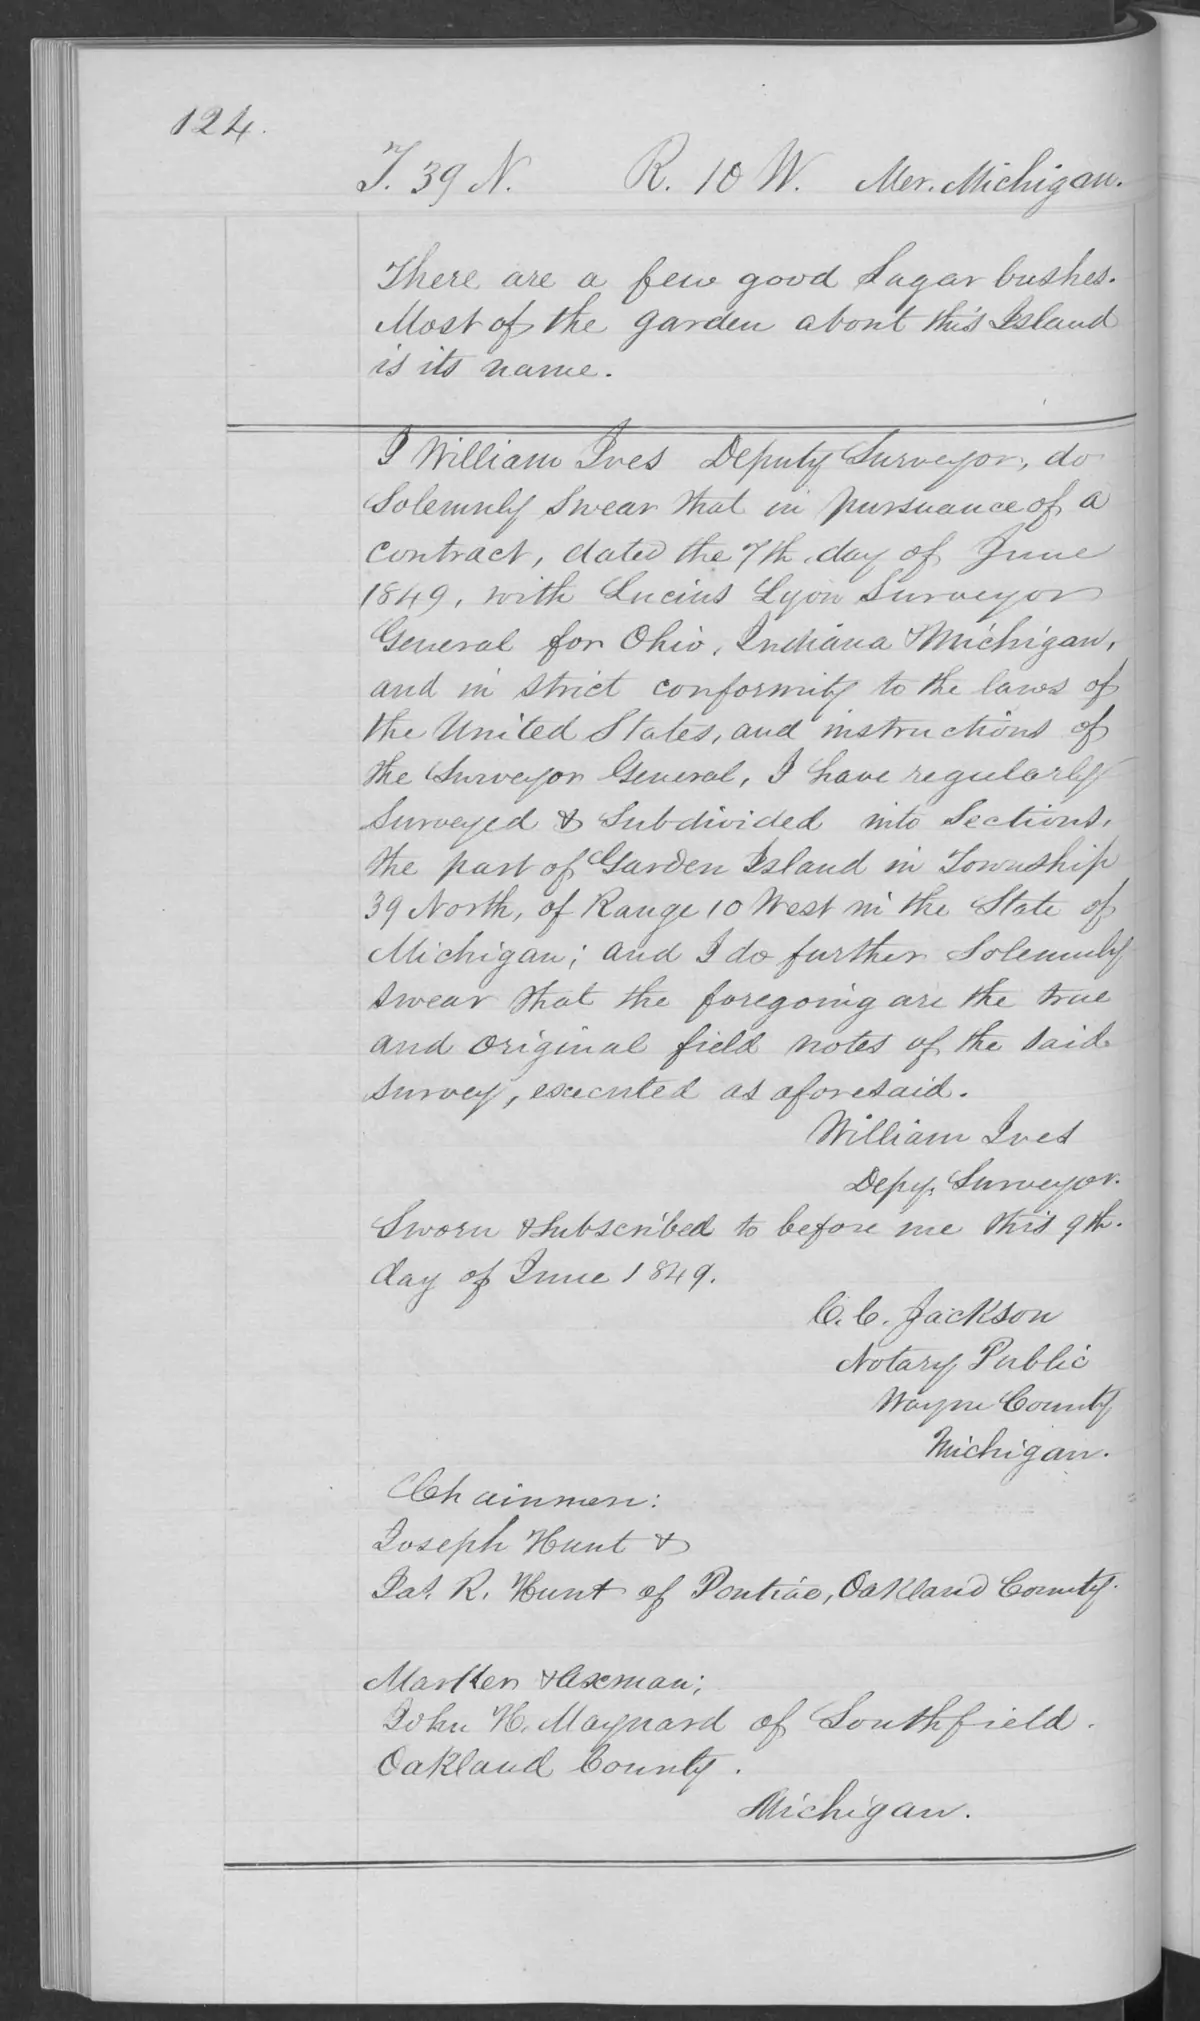 124.
T. 39 N. R. 10 W. Mer. Michigan.
There are a few good Sugar bushes.
Most of the garden about this Island
is its name.
I William Ives Deputy Surveyor, do
Solemnly Swear that in pursuance of a
contract, dated the 7th day of June
1849, with Lucius Lyon Surveyor
General for Ohio, Indiana & Michigan,
and in strict conformity to the laws of
the United States, and instructions of
the Surveyor General, I have regularly
surveyed & Subdivided into Sections,
the part of Garden Island in Township
39 North, of Range 10 West in the State of
Michigan; and I do further Solemnly
swear that the foregoing are the true
and original field notes of the said
survey, executed as aforesaid.
William Ives
Depy. Surveyor.
Sworn & Subscribed to before me this 9th.
day of June 1849.
C. C. Jackson
Notary Public
Wayne County
Michigan.
Chainmen:
Joseph Hunt &
Jas. R. Hunt of Pontiac, Oakland County.
Markker & Axman;
John H. Maynard of Southfield.
Oakland County.
Michigan.